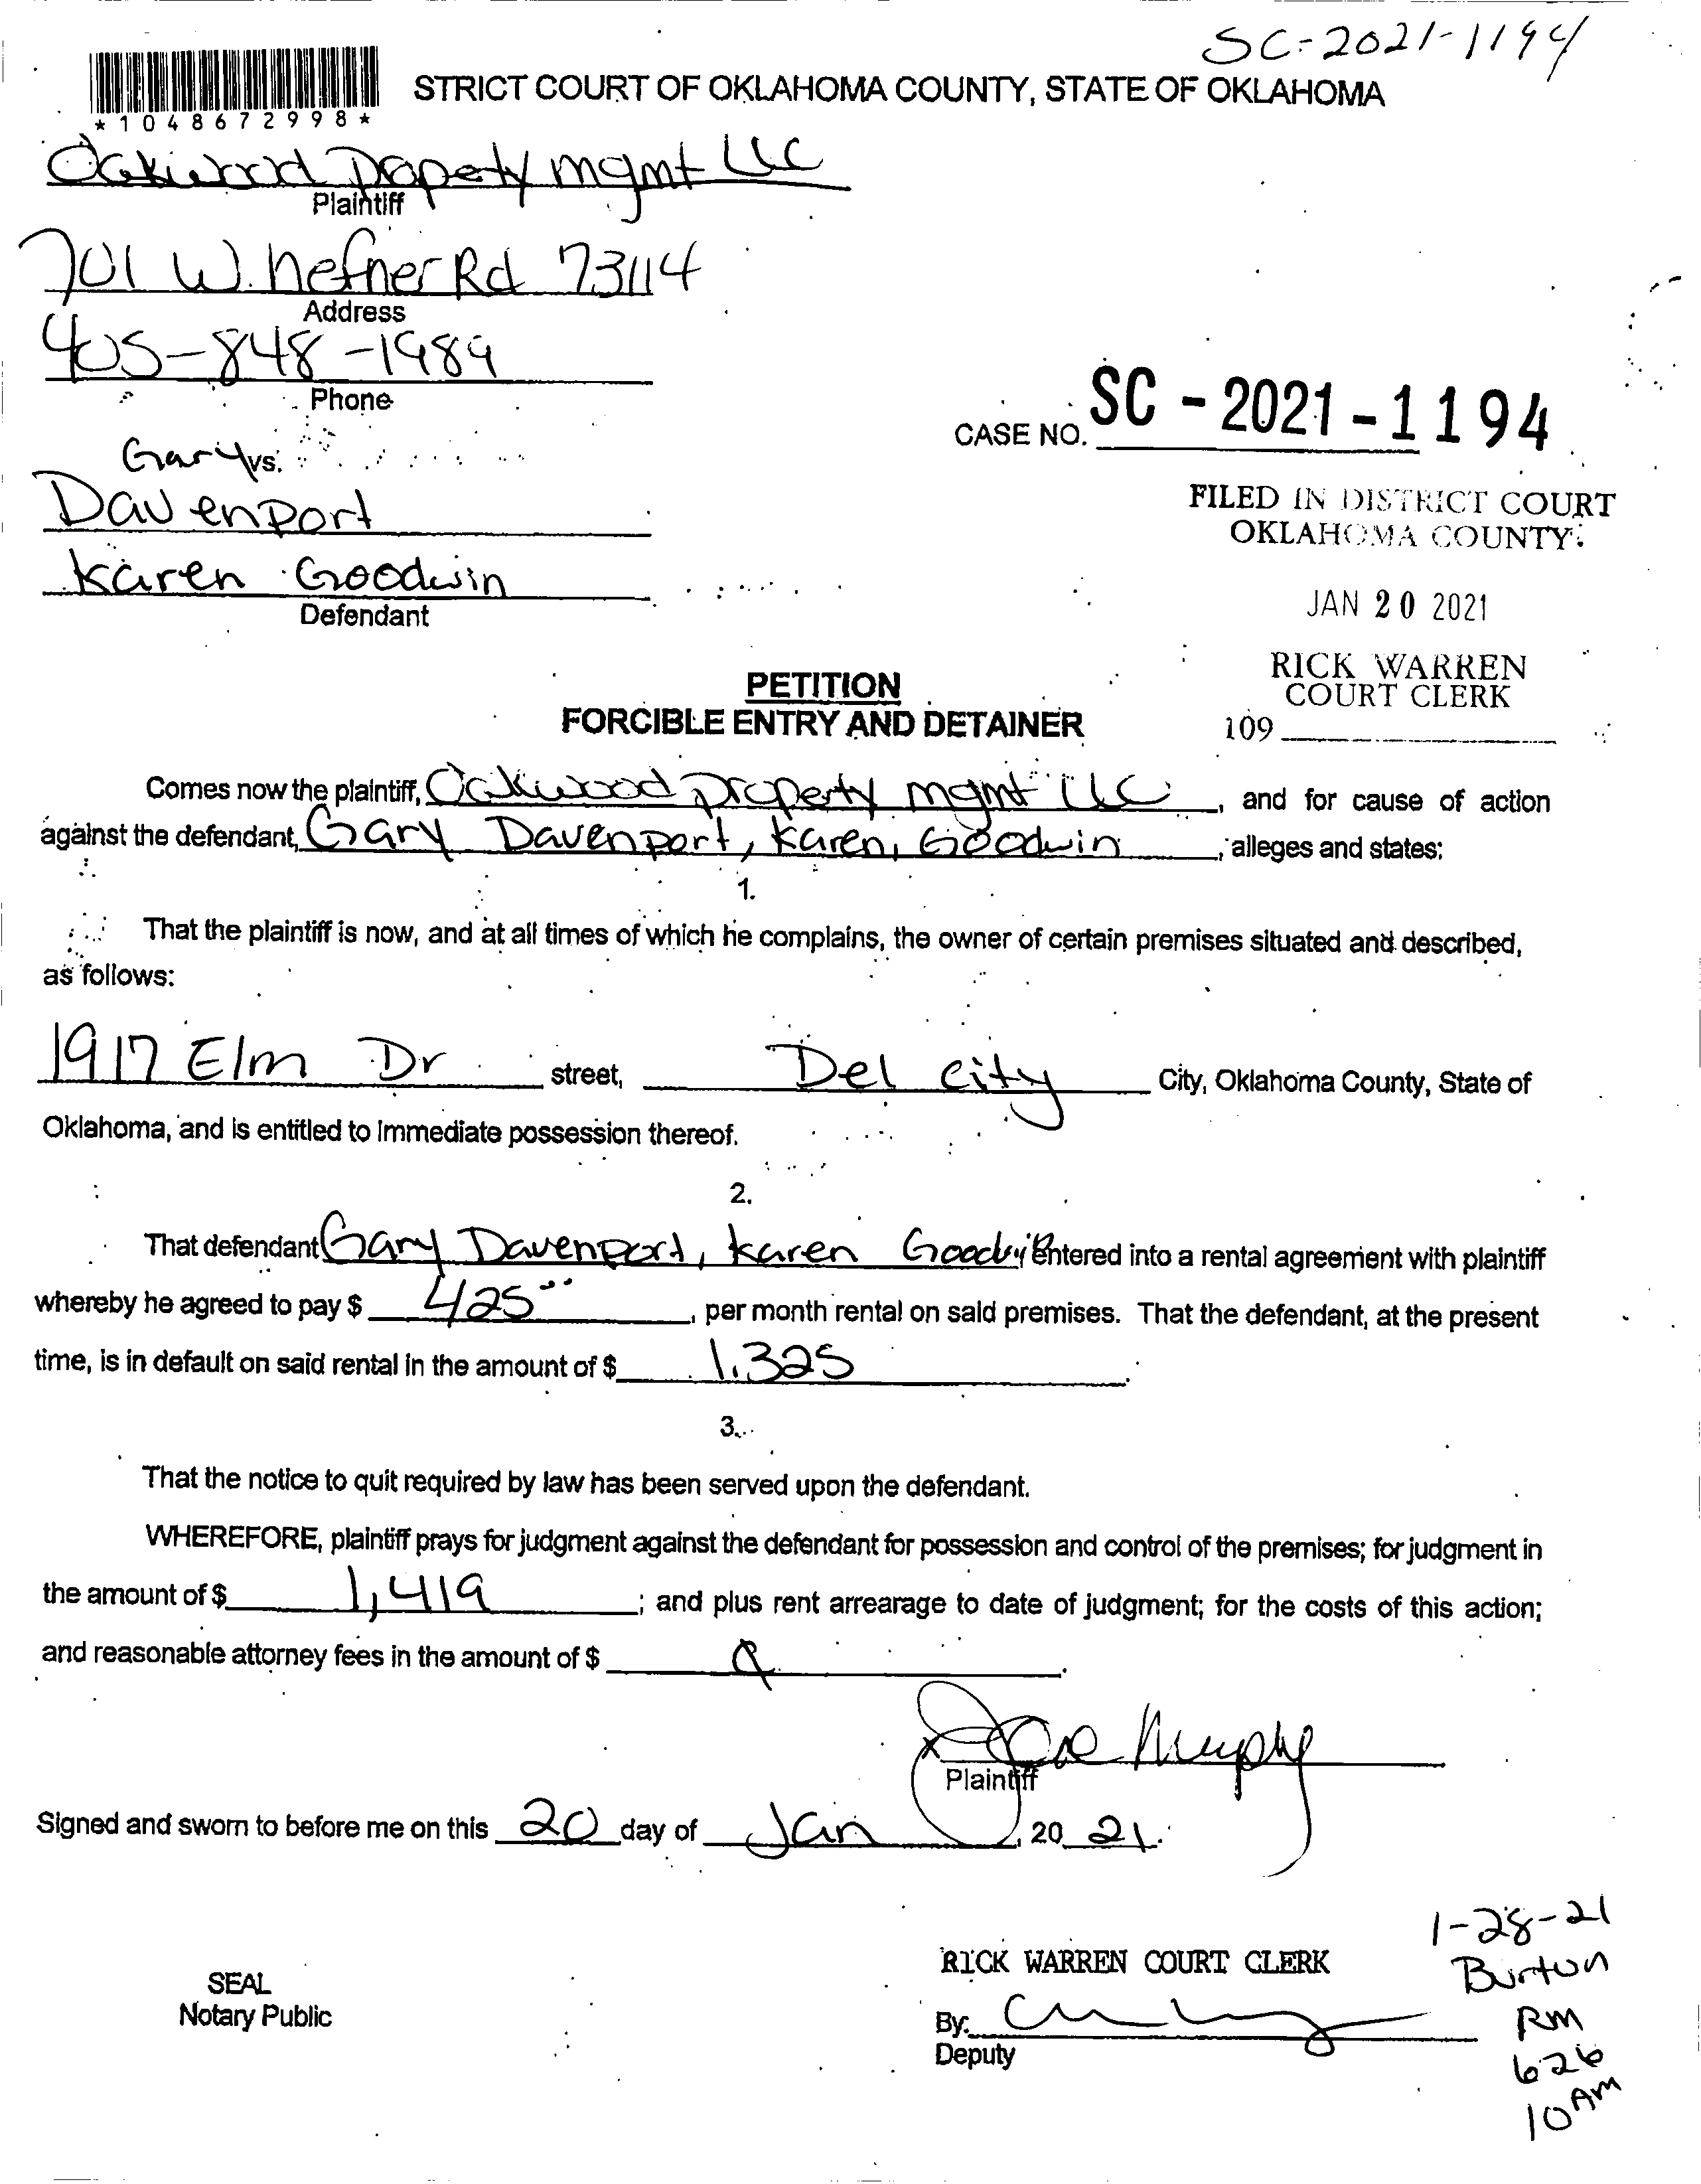 SC-2021-1194
STRICT COURT OF OKLAHOMA COUNTY, STATE OF OKLAHOMA
*1048672998*
Oakwood Propety mgmt LLC
Plaintiff
701 W. hefner Rd 73114
Address
405-848-1989
Phone
CASE NO. SC-2021-1194
Gary vs.
Davenport
FILED IN DISTRICT COURT
OKLAHOMA COUNTY
Karen Goodwin
Defendant
JAN 20 2021
RICK WARREN
COURT CLERK
109
PETITION
FORCIBLE ENTRY AND DETAINER
Comes now the plaintiff, Oakwood Property mgmt LLC, and for cause of action
against the defendant, Gary Davenport, Karen, Goodwin, alleges and states:
1.
That the plaintiff is now, and at all times of which he complains, the owner of certain premises situated and described,
as follows:
1917 Elm Dr street, Del City City, Oklahoma County, State of
Oklahoma, and is entitled to immediate possession thereof.
2.
That defendant Gary Davenport, Karen Goodwin entered into a rental agreement with plaintiff
whereby he agreed to pay $ 425, per month rental on said premises. That the defendant, at the present
time, is in default on said rental in the amount of $ 1.325.
3.
That the notice to quit required by law has been served upon the defendant.
WHEREFORE, plaintiff prays for judgment against the defendant for possession and control of the premises; for judgment in
the amount of $ 1,419; and plus rent arrearage to date of judgment; for the costs of this action;
and reasonable attorney fees in the amount of $
Murphy
Plaintiff
Signed and sworn to before me on this 20 day of Jan, 20 21.
1-28-21
Burton
RM
626
10 AM
RICK WARREN COURT CLERK
SEAL
Notary Public
By:
Deputy